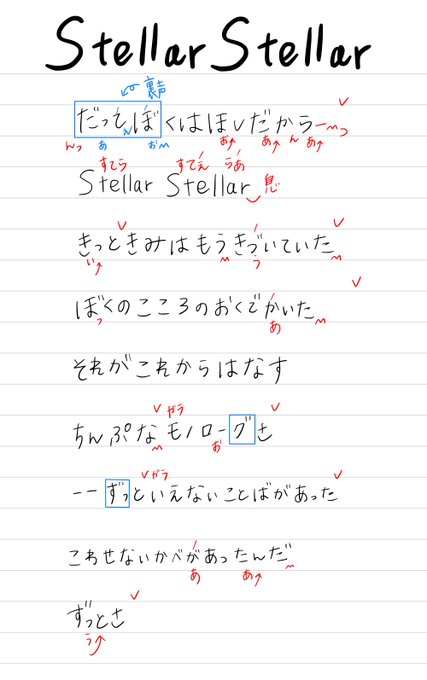 Stellar Stellar
裏声
だってぼくはほしだからー
んっ あ お お あ ん あ
すてら すてえ らあ
Stellar Stellar 息
きっときみはもうきづいていた
い う
ぼくのこころのおくでかいた
っ あ
それがこれからはなす
ガラ
ちんぷなモノローグさ
お
ガラ
ーーずっといえないことばがあった
こわせないかべがあったんだ
あ あ
ずっとさ
う